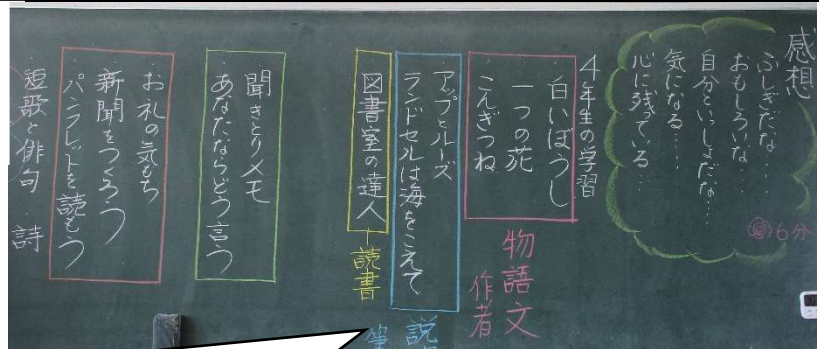 感想
ふしぎだな…
おもしろいな…
自分といっしょだな…
気になる…
心に残っている…
6分
4年生の学習
白いぼうし
一つの花
こんぎつね
物語文
作者
アップとルーズ
ランドセルは海をこえて
説
筆
図書室の達人
読書
聞きとりメモ
あなたならどう言う
お礼の気もち
新聞をつくろう
パンフレットを読もう
短歌と俳句 詩